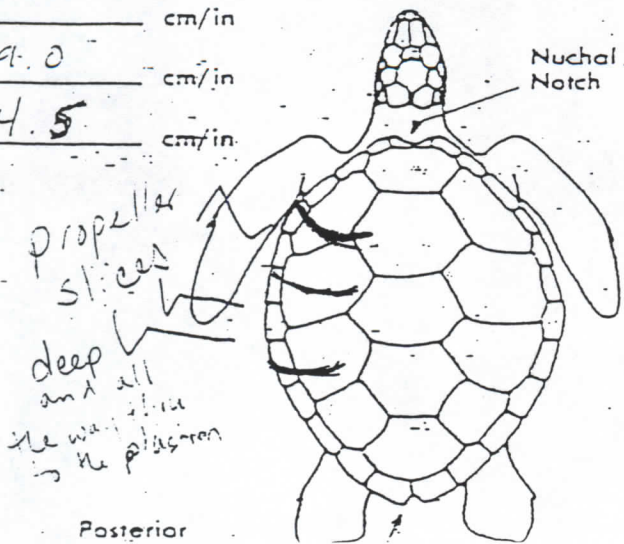 cm/in
9.0 cm/in
4.5 cm/in
Nuchal
Notch
propeller
slices
deep
and all
the way thru
to the plastron
Posterior